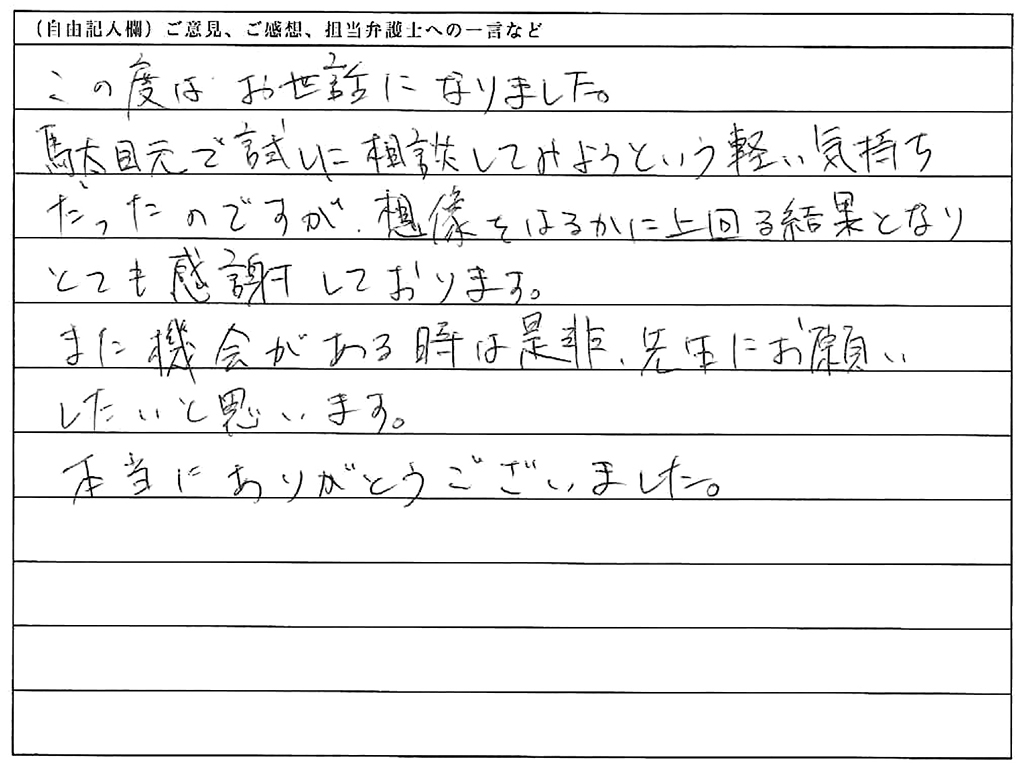 （自由記入欄）ご意見、ご感想、担当弁護士への一言など
この度は お世話に なりました。
駄目元で試しに相談してみようという軽い気持ち
だったのですが、想像をはるかに上回る結果となり
とても感謝しております。
また機会がある時は是非、先生にお願い
したいと思います。
本当にありがとうございました。